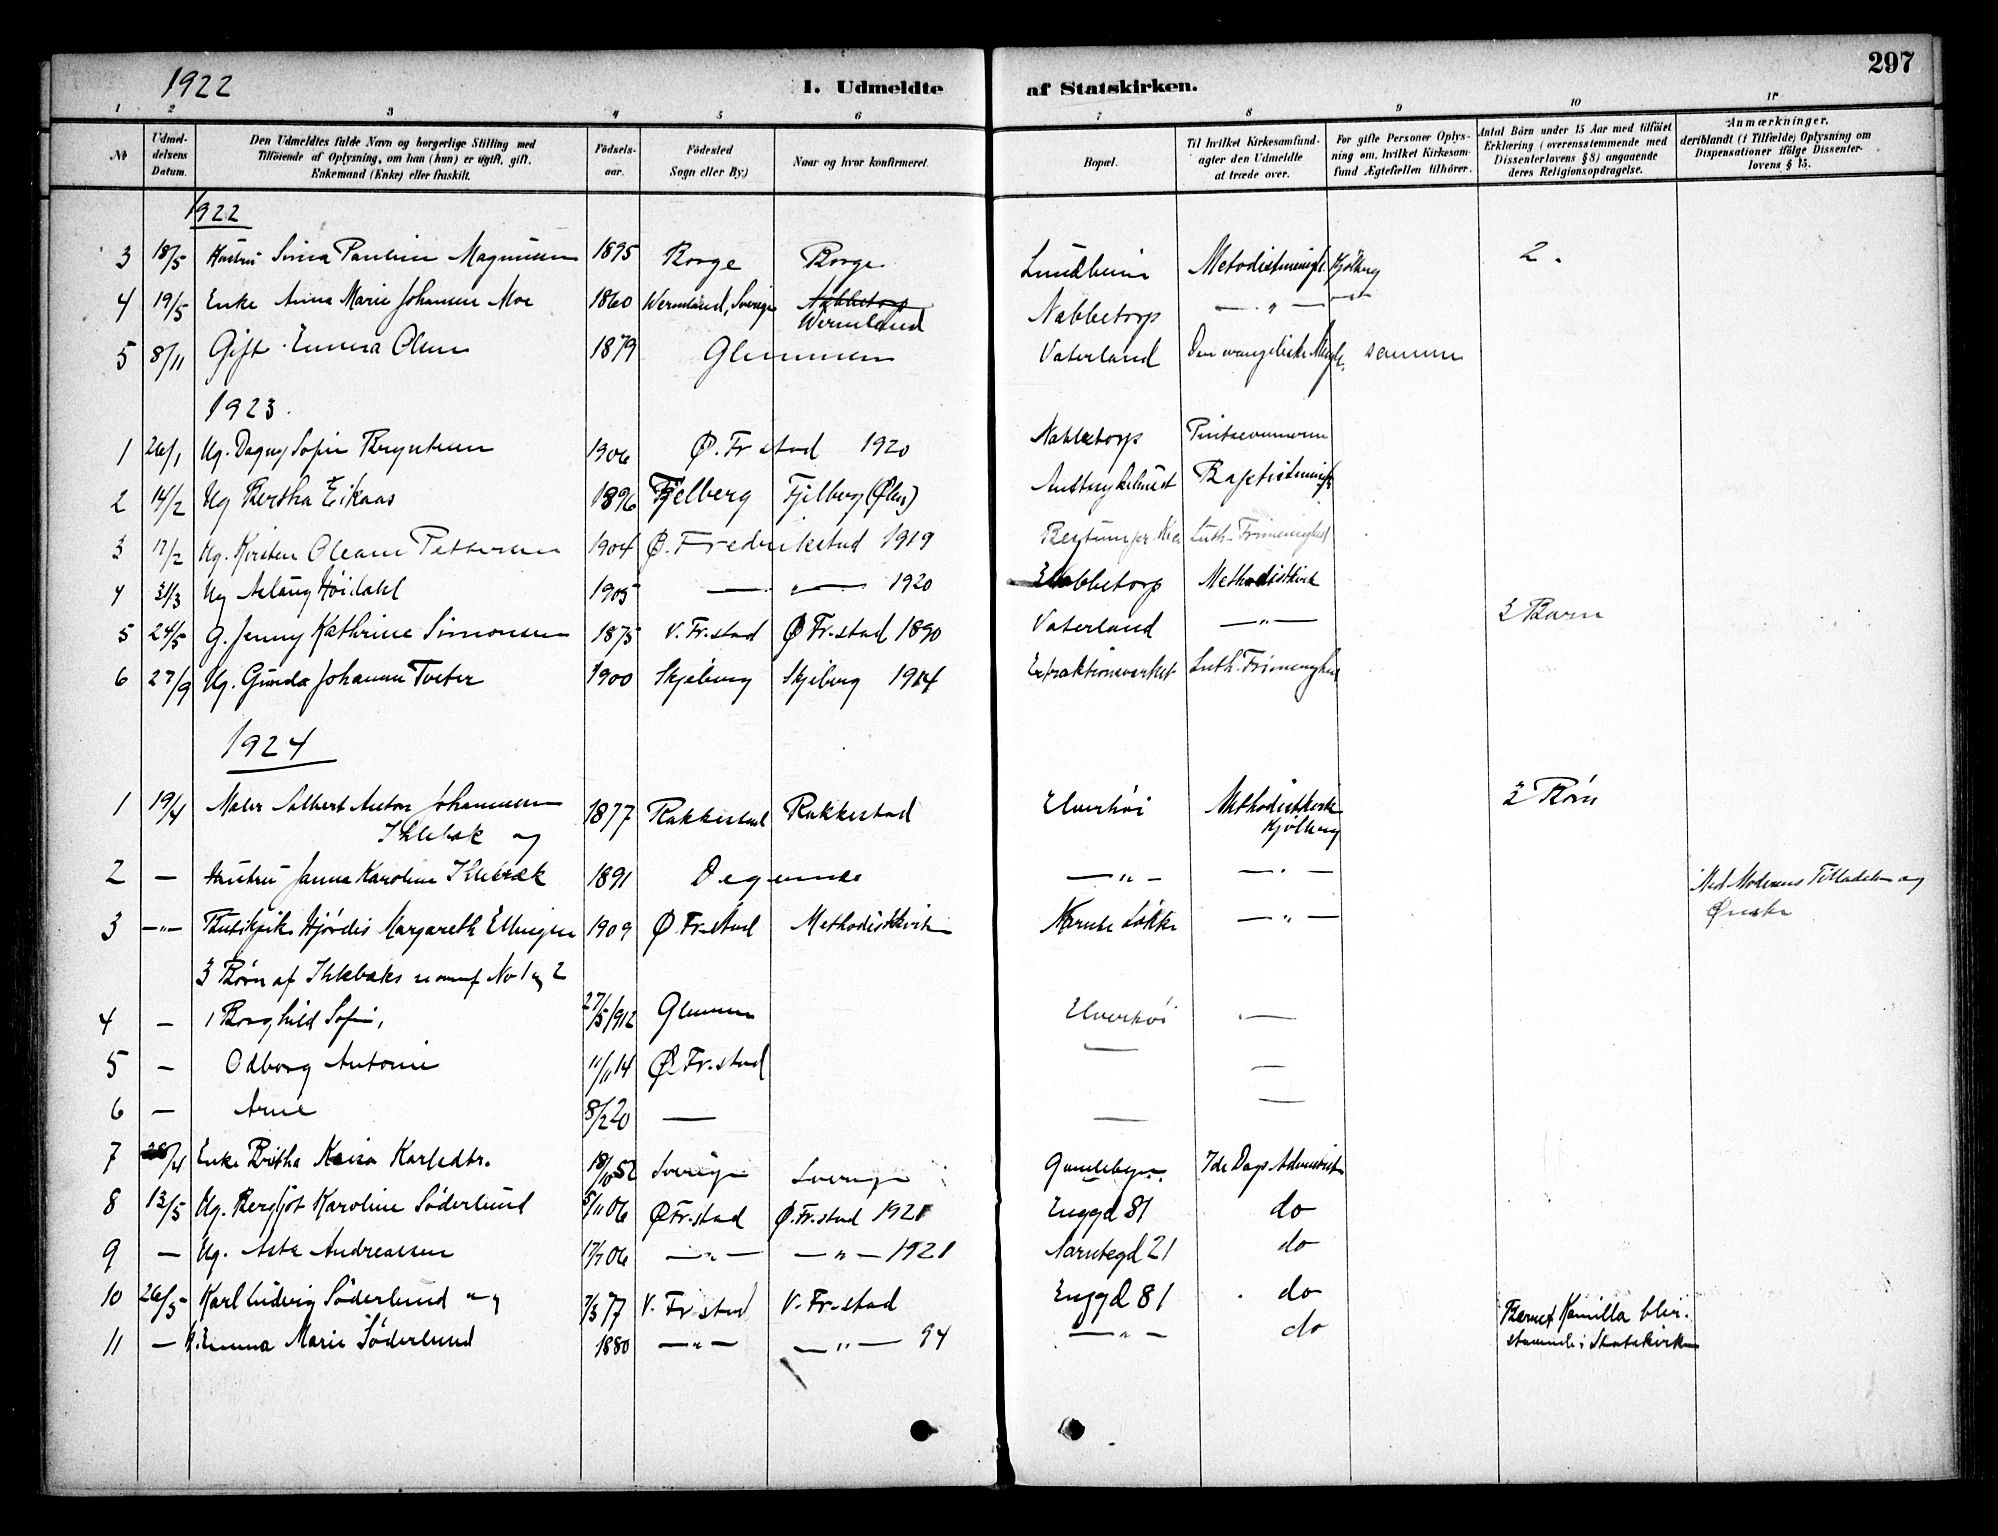 297
1922
I. Udmeldte af Statskirken.
1 2 3 4 5 6 7 8 9 10 11
No
Udmeldelsens Datum.
Den Udmeldtes fulde Navn og borgerlige Stilling med
Tilföiende af Oplysning, om han (hun) er ugift, gift,
Enkemand (Enke) eller fraskilt.
Födselsaar.
Födested
Sogn eller By.)
Naar og hvor konfirmeret.
Bopæl.
Til hvilket Kirkesamfund-
agter den Udmeldte
at træde over.
For gifte Personer Oplys-
ning om, hvilket Kirkesam-
fund Ægtefællen tilhörer.
Antal Börn under 15 Aar med tilföiet
Erklæring (overensstemmende med
Dissenterlovens § 8) angaaende
deres Religionsopdragelse.
Anmærkninger,
deriblandt (i Tilfælde) Oplysning om
Dispensationer ifölge Dissenter-
lovens § 15.
1922
3 18/5 Hustru Pauline Magnussen 1895 Borge Borge Lundheim Metodistmenigh. Kjölberg 2.
4 19/5 Enke Anna Marie Johansen Moe 1860 Wermland, Sverige Nabbetorp Wermland Nabbetorp — " —
5 8/11 Gift Emma Olsen 1879 Glemmen Vaterland Den evangeliske Mengh. samme
1923.
1 26/1 Ug. Dagny Sofie Bryntesen 1906 Ø. Fr.stad 1920 Nabbetorp Pintsevennerne
2 14/2 Ug Bertha Eikaas 1896 Fjelberg Fjelberg (Ølen) Baptistmenigh
3 17/2 Ug. Kirsten Oleane Pettersen 1904 Ø. Fredrikstad 1919 Luth. Frimenighed
4 31/3 Ug Aslaug Höidahl 1905 — " — 1920 Nabbetorp Methodistkirk
5 24/5 G. Jenny Kathrine Simonsen 1875 V. Fr.stad Ø Fr.stad 1890 Vaterland — " — 3 Barn
6 27/9 Ug. Gunda Johanne Tveter 1900 Skjeberg Skjeberg 1914 Extraktionsverket Luth. Frimenighed
1924
1 19/4 Maler Albert Anton Johannesen 1877 Rakkestad Rakkestad Elverhöi Methodistkirke 3 Börn
Iklebæk og Kjölberg
2 — Hustru Janna Karoline Iklebæk 1891 Degernes — " — — " — Med Moderens Tilladelse og
Ønske
3 — " — Hjördis Margareth Ellingsen 1909 Ø Fr.stad Methodistkirke Løkke — " —
3 Börn af Iklebæks No 1 og 2
4 — 1 Borghild Sofie, 27/5 1912 Glemmen Elverhöi —
5 — Odborg Antonie 11/11 14 Ø Fr.stad — —
6 — Arne 8/2 20 — — —
7 28/4 Enke Britha Kaisa Karlsdtr. 18/10 52 Sverige Sverige Gamlebyen 7de Dags Adventist
8 13/5 Ug. Bergljot Karoline Söderlund 5/11 06 Ø Fr.stad Ø. Fr.stad 1921 Enggd 81 do
9 — Ug. Asta Andreassen 17/7 06 — " — — " — 1921 21 do
10 26/5 Karl Ludvig Söderlund og 7/3 77 V. Fr.stad V. Fr.stad Enggd 81 do Barnet Kamilla blir
11 — H. Emma Marie Söderlund 1880 — " — — " — 94 — " — do staaende i Statskirken